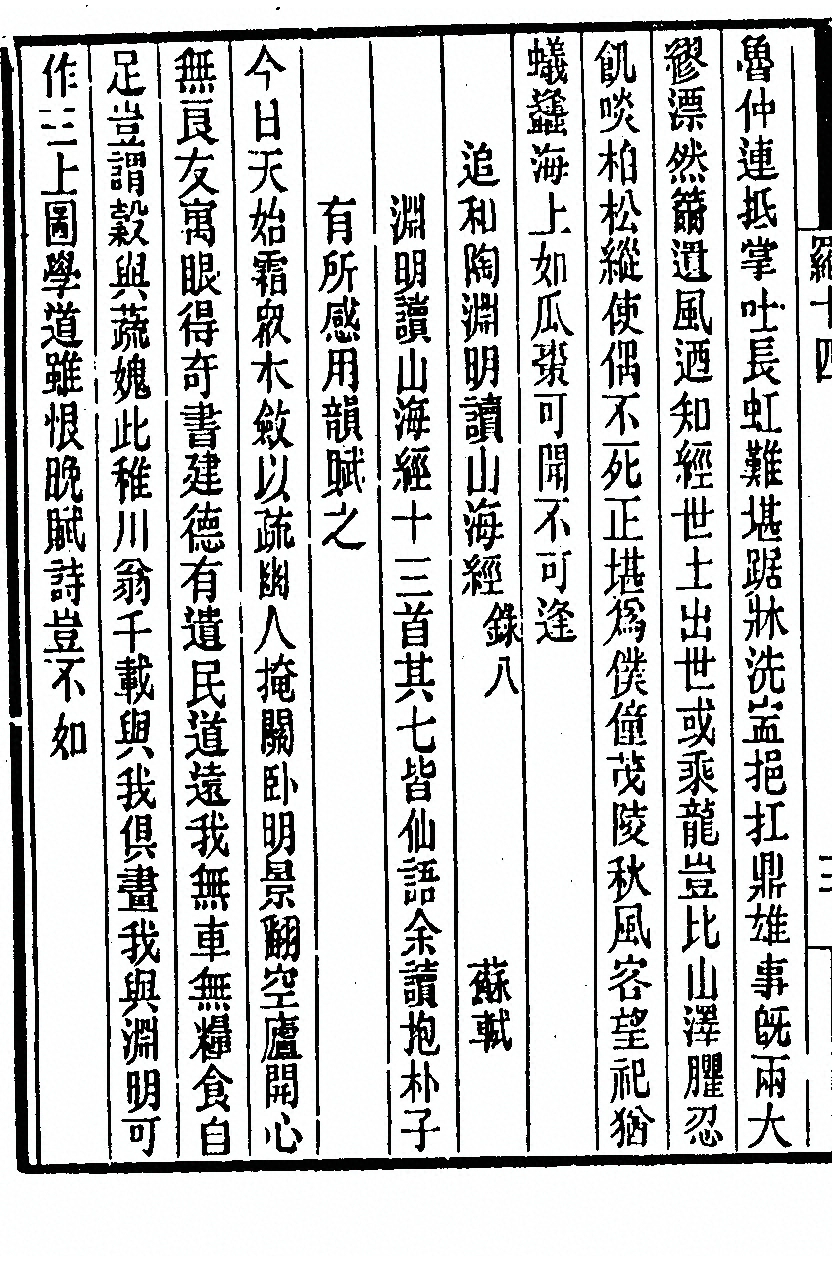 羅十四
三
魯仲連抵掌吐長虹難堪踞牀洗盖挹扛鼎雄事旣兩大
繆漂然籋遺風迺知經世士出世或乘龍豈比山澤臞忍
飢啖柏松縱使偶不死正堪爲僕僮茂陵秋風客望祀猶
蟻蠭海上如瓜棗可聞不可逢
追和陶淵明讀山海經錄八 蘇軾
淵明讀山海經十三首其七皆仙語余讀抱朴子
有所感用韻賦之
今日天始霜眾木斂以疏幽人掩關卧明景翻空廬開心
無良友寓眼得奇書建德有遺民道遠我無車無糧食自
足豈謂穀與蔬媿此稚川翁千載與我俱畫我與淵明可
作三士圖學道雖恨晚賦詩豈不如